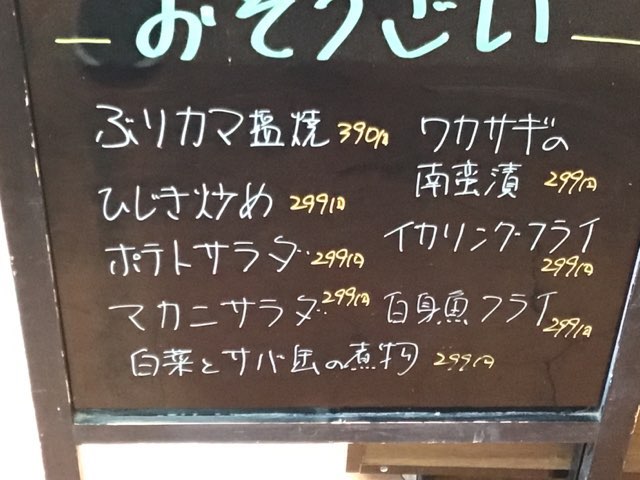 おそうざい
ぶりカマ塩焼 390円
ひじき炒め 299円
ポテトサラダ 299円
マカニサラダ 299円
白菜とサバ缶の煮物 299円
ワカサギの
南蛮漬 299円
イカリングフライ
299円
白身魚フライ
299円